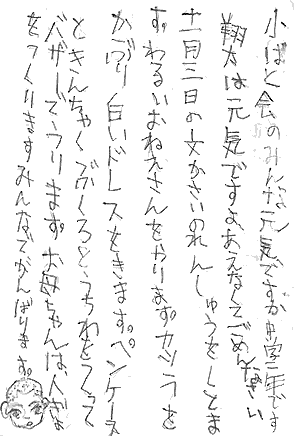 小ばと会のみんな元気ですか中学二年です
翔太は元気ですよあえなくてごめんなさい
十一月三日の文かさいのれんしゅうをしてま
す。わるいおねえさんをやります。カツラを
かぶり白いドレスをきます。ペンケース
ときんちゃくぶくろとうちわをつくって
バザーでうります。お母ちゃんは
をつくりますみんなでがんばります。